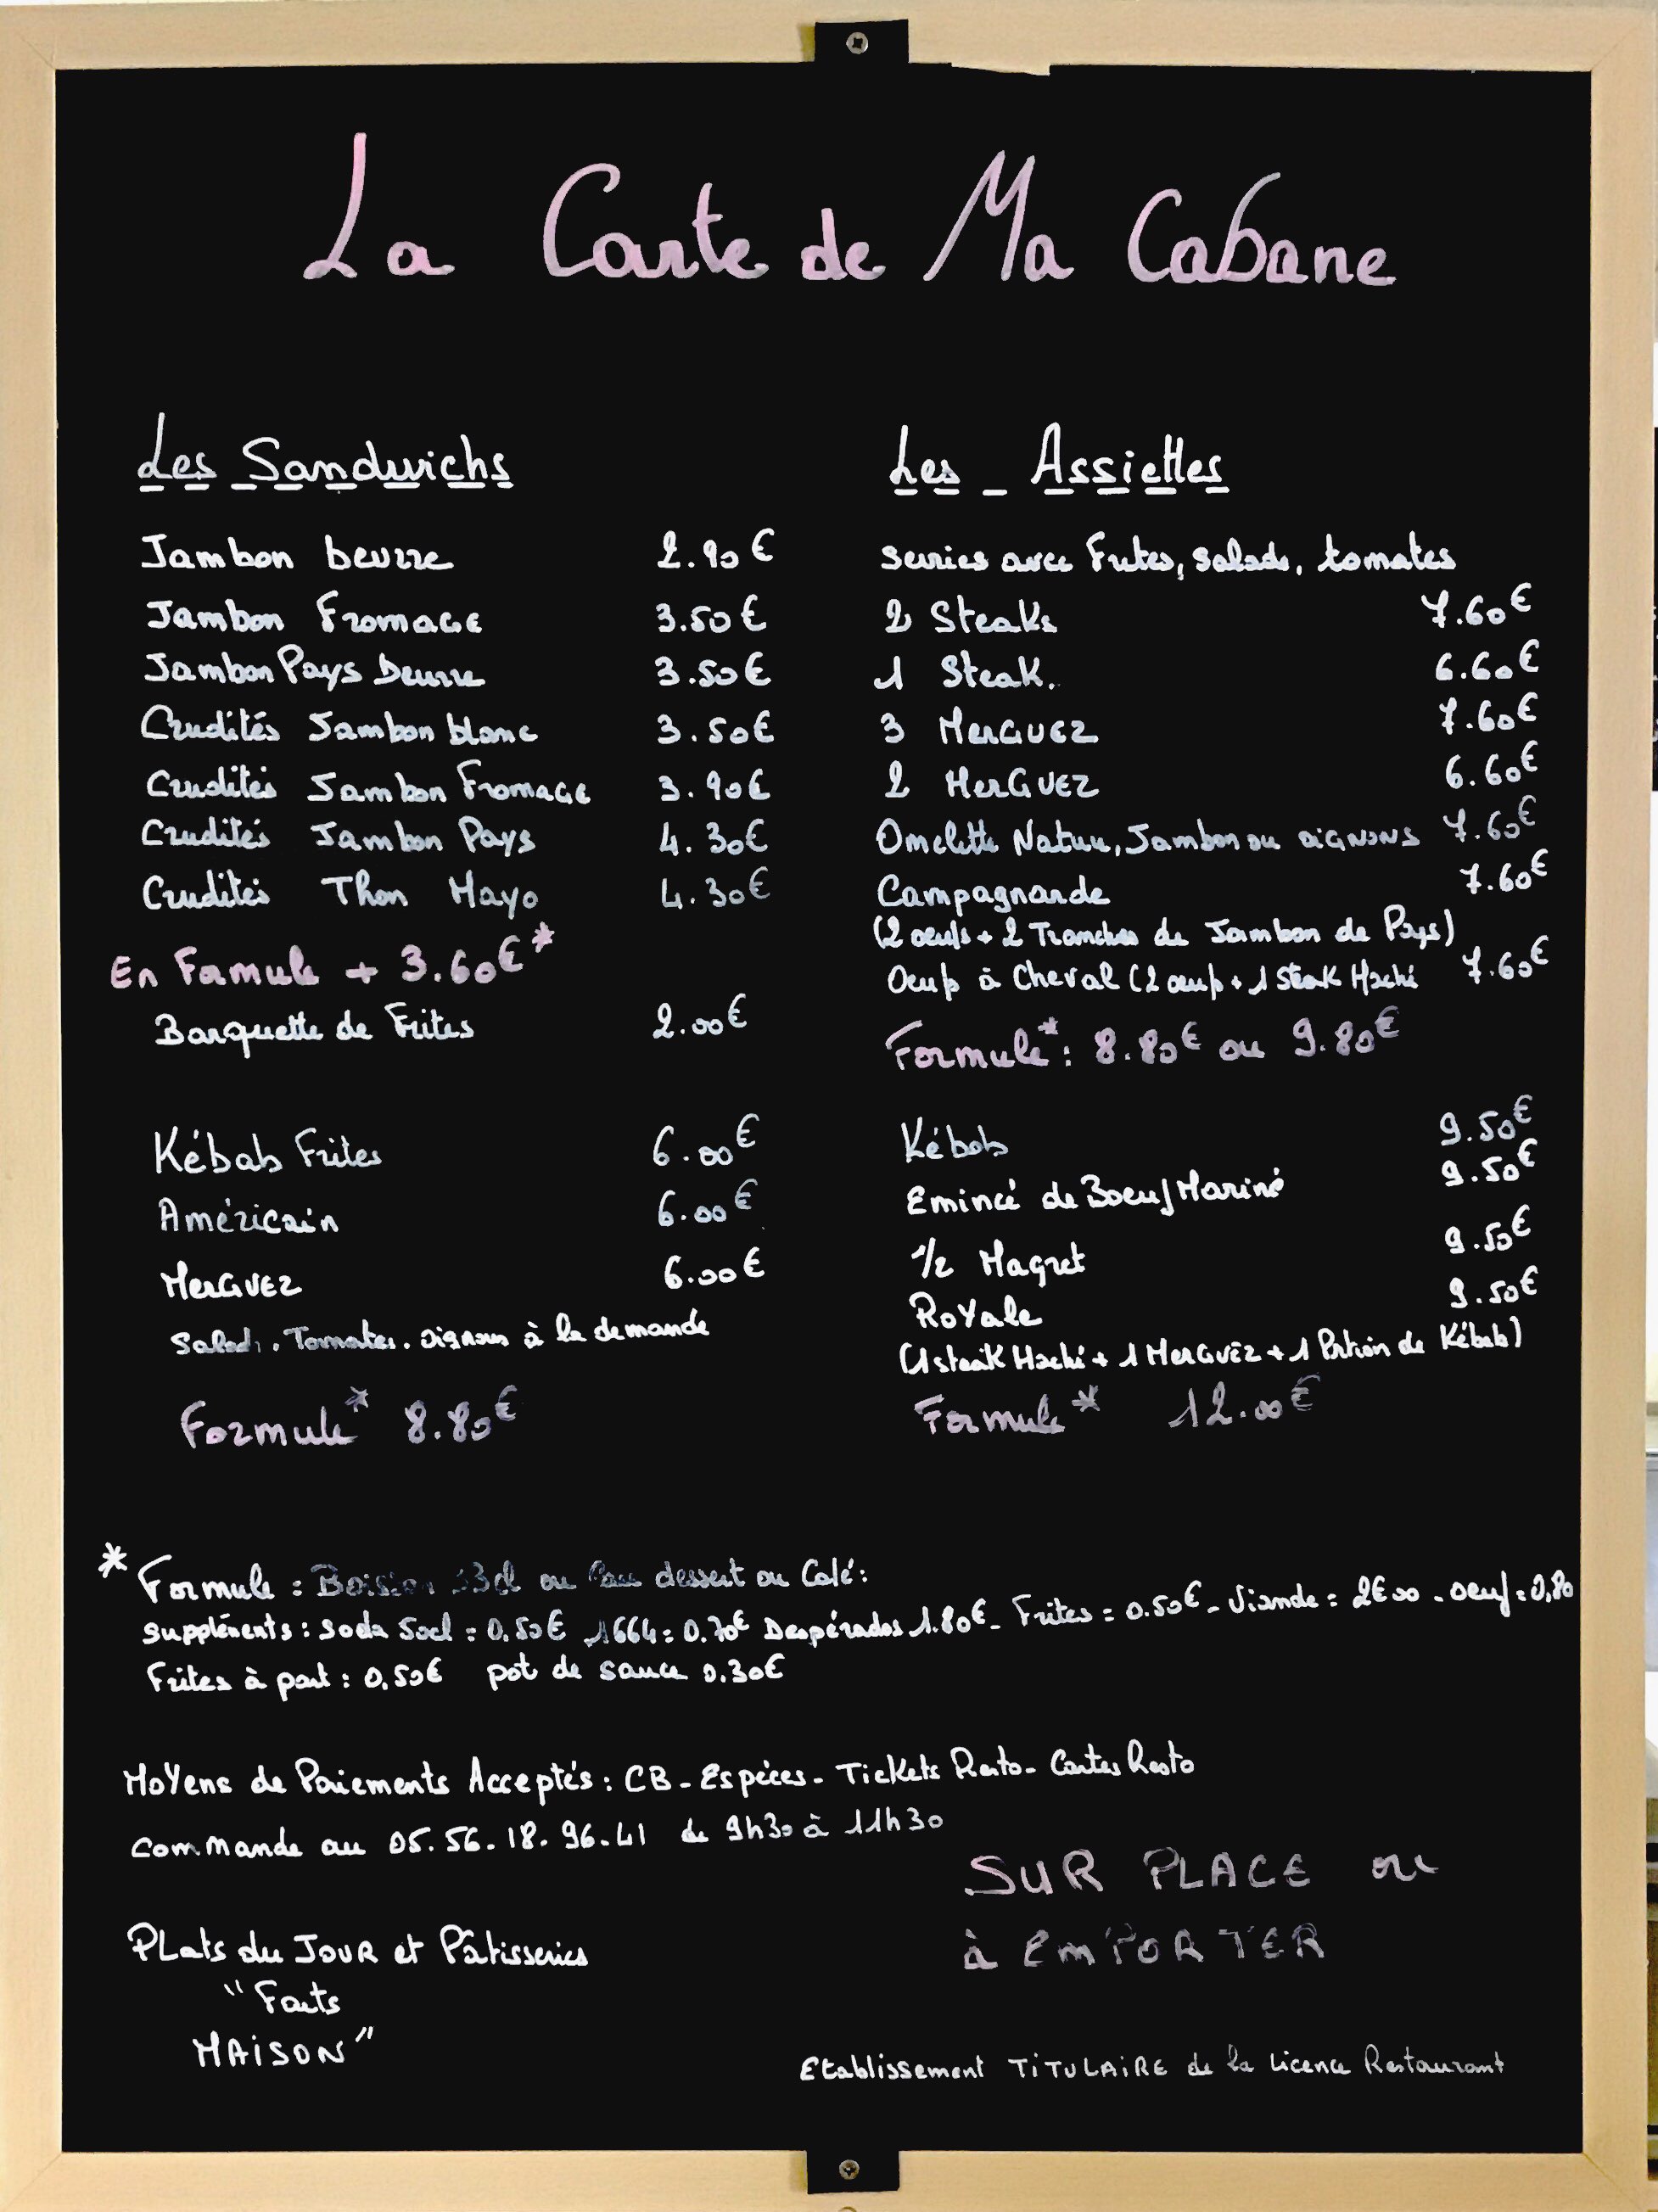 La Carte de Ma Cabane
Les Sandwichs
Jambon beurre 2.90€
Jambon Fromage 3.50€
Jambon Pays beurre 3.50€
Crudités Jambon blanc 3.50€
Crudités Jambon Fromage 3.90€
Crudités Jambon Pays 4.30€
Crudités Thon Mayo 4.30€
En Formule + 3.60€*
Barquette de Frites 2.00€
Kébab Frites 6.00€
Américain 6.00€
Merguez 6.00€
Salade. Tomates. oignons à la demande
Formule* 8.80€
Les Assiettes
servies avec Frites, salade, tomates
2 Steaks 7.60€
1 Steak. 6.60€
3 Merguez 7.60€
2 Merguez 6.60€
Omelette Nature, Jambon ou oignons 7.60€
Campagnarde 7.60€
(2 oeufs + 2 Tranches de Jambon de Pays)
Oeufs à Cheval (2 oeufs + 1 Steak Haché 7.60€
Formule*: 8.80€ ou 9.80€
Kébab 9.50€
Emincé de Boeuf Mariné 9.50€
1/2 Magret 9.50€
Royale 9.50€
(1 steak Haché + 1 Merguez + 1 Portion de Kébab)
Formule* 12.00€
* Formule : Boisson 33cl ou Eau dessert ou Café :
suppléments : soda 50cl = 0.50€ 1664 = 0.70€ Despérados 1.80€ - Frites = 0.50€ - Viande = 2€00 - oeuf = 0,80
Frites à part : 0,50€ pot de sauce 0.30€
Moyens de Paiements Acceptés : CB - Espéces - Tickets Resto - Cartes Resto
commande au 05.56.18.96.41 de 9h30 à 11h30
SUR PLACE ou
à EMPORTER
Plats du JOUR et Pâtisseries
"Faits
MAiSON"
Etablissement TiTULAiRE de la Licence Restaurant